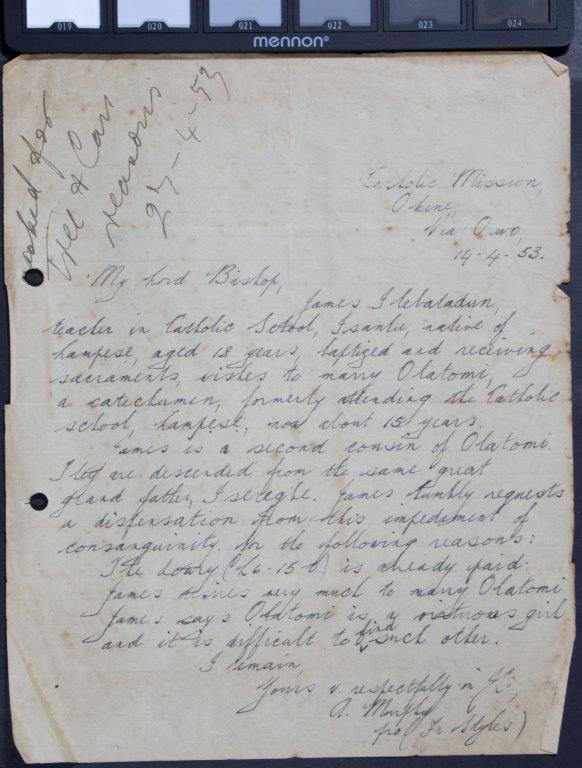 019 020 021 022 023 024
mennon®
asked for
Tree & Can
reasons
27-4-53
Catholic Mission,
Okene,
Via Owo,
14-4-53.
My Lord Bishop,
James Ilebaladun,
teacher in Catholic School, Isanlu, native of
Kampese, aged 18 years, baptized and receiving
sacraments, wishes to marry Olatomi,
a catechumen, formerly attending the Catholic
school, Kampese, now about 15 years.
James is a second cousin of Olatomi.
They are descended from the same great
grand father, Iseregbe. James humbly requests
a dispensation from this impediment of
consanguinity for the following reasons:
The dowry (£6-15-0) is already paid.
James desires very much to marry Olatomi
James says Olatomi is a virtuous girl
and it is difficult to find such other.
I remain,
Yours v. respectfully in JC,
A. Murphy
pro (Fr Styles)